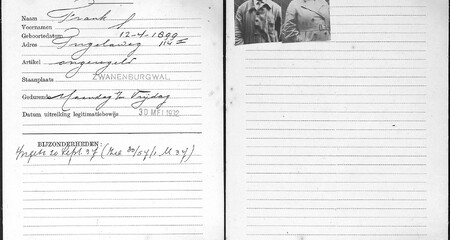 Naam Frank
Voornamen S.
Geboortedatum 12-4-1899
Adres 114 II
Artikel ongeregeld
Staanplaats ZWANENBURGWAL
Gedurende Maandag t/m Vrijdag
Datum uitreiking legitimatiebewijs 30 MEI 1932
BIJZONDERHEDEN:
20 Sept. 37